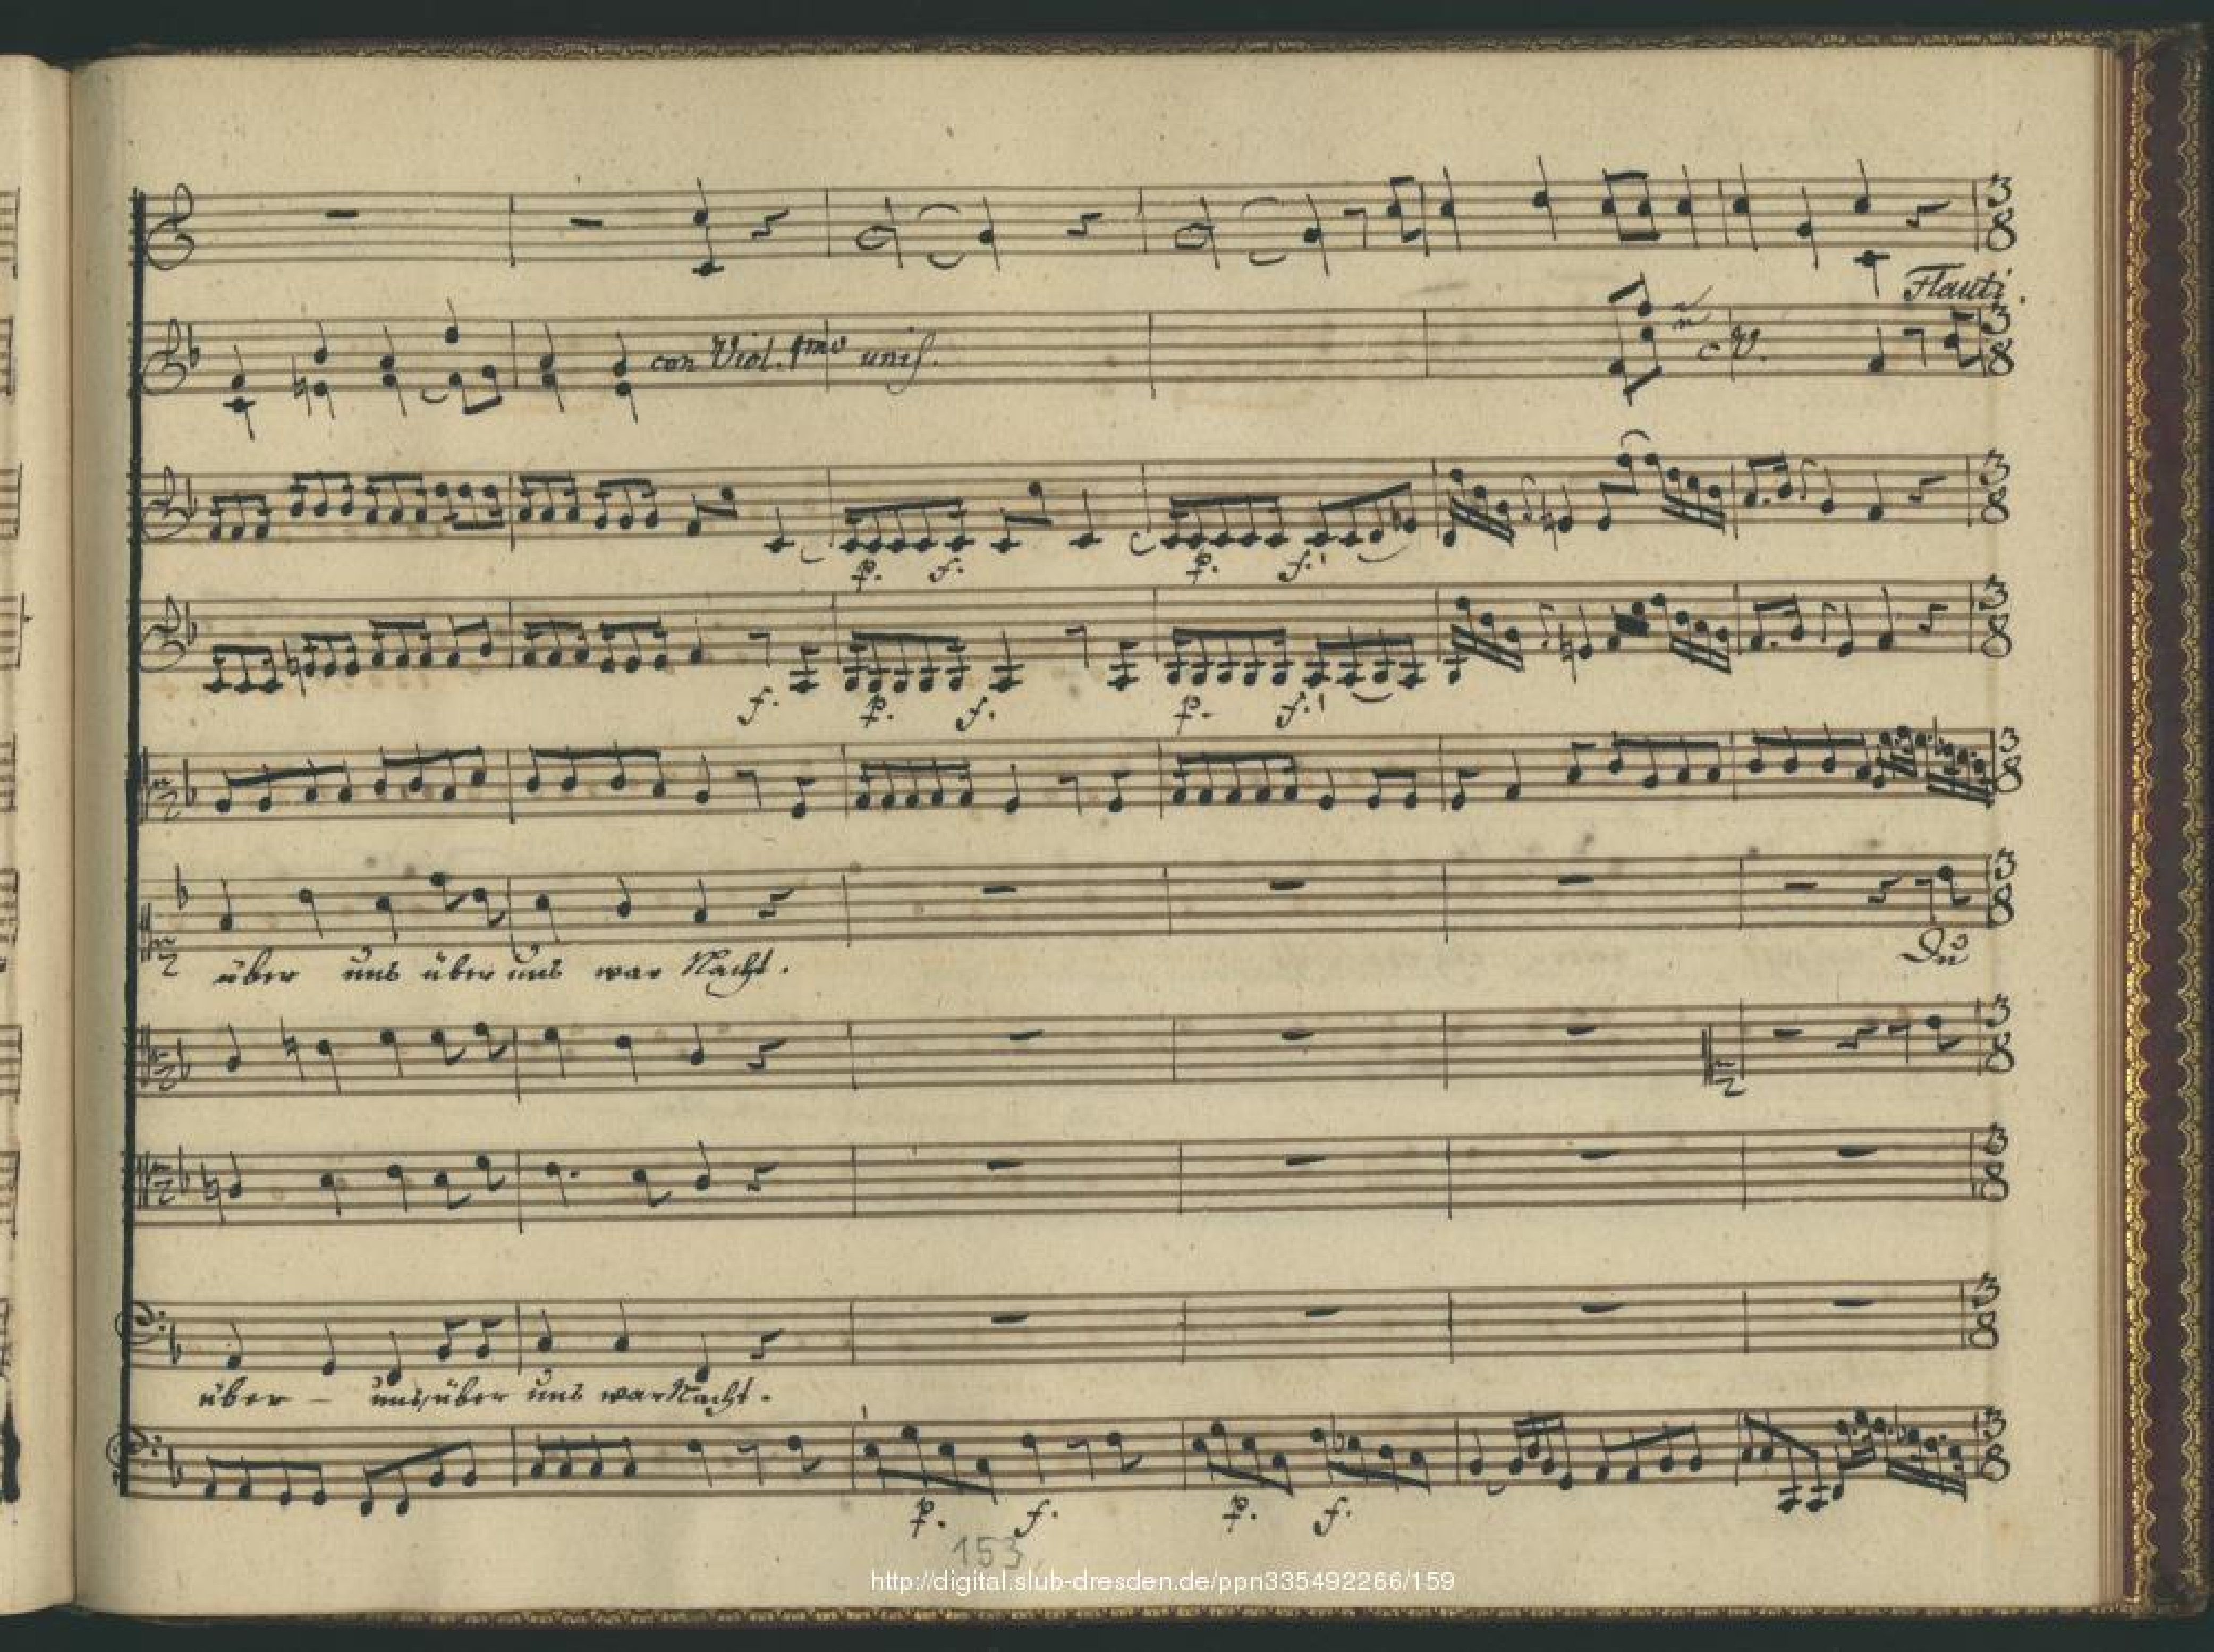 Flauti.
con Viol. 1mo unis.
c V.
p. f. p. f.
f. p. f. p. f.
über uns über uns war Nacht.
Du
über – uns, über uns war Nacht.
p. f. p. f.
153
http://digital.slub-dresden.de/ppn335492266/159